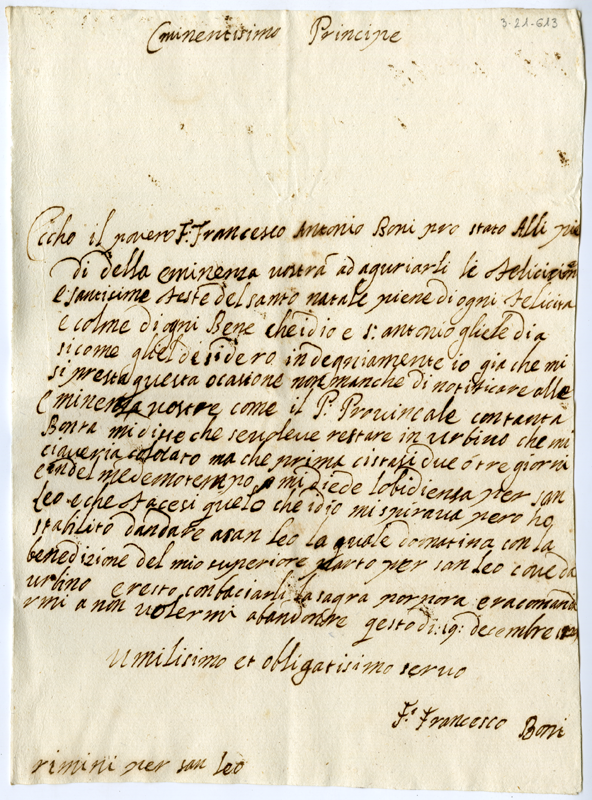 3-21-613
Eminentisimo Principe
Eccho il povero F. Francesco Antonio Boni pro stato Alli pie
di della eminenza vostra ad aguriarli le
e santisime feste del santo natale piene di ogni felicita
e colme di ogni Bene che idio e S. antonio gliele dia
sicome gliel desidero indegniamente io gia che mi
si presta questa ocasione non manche di notificare alle
Eminenza vostre come il P. Provinciale con tanta
Bonta mi disse che se voleve restare in urbino che mi
colocato ma che prima ci stasi due o tre giorni
e nel medemo tempo mi diede lobidiensa per san
Leo e che facesi quelo che idio mi spirava pero ho
stabilito dandare a san leo la quale domatina con la
benedizione del mio superiore parto per san leo
urbino e resto con baciarli la sagra porpora e racomanda
rmi a non volermi abandonare questo di 19 decembre
umilisimo et obligatisimo servo
F. Francesco Boni
rimini per san leo